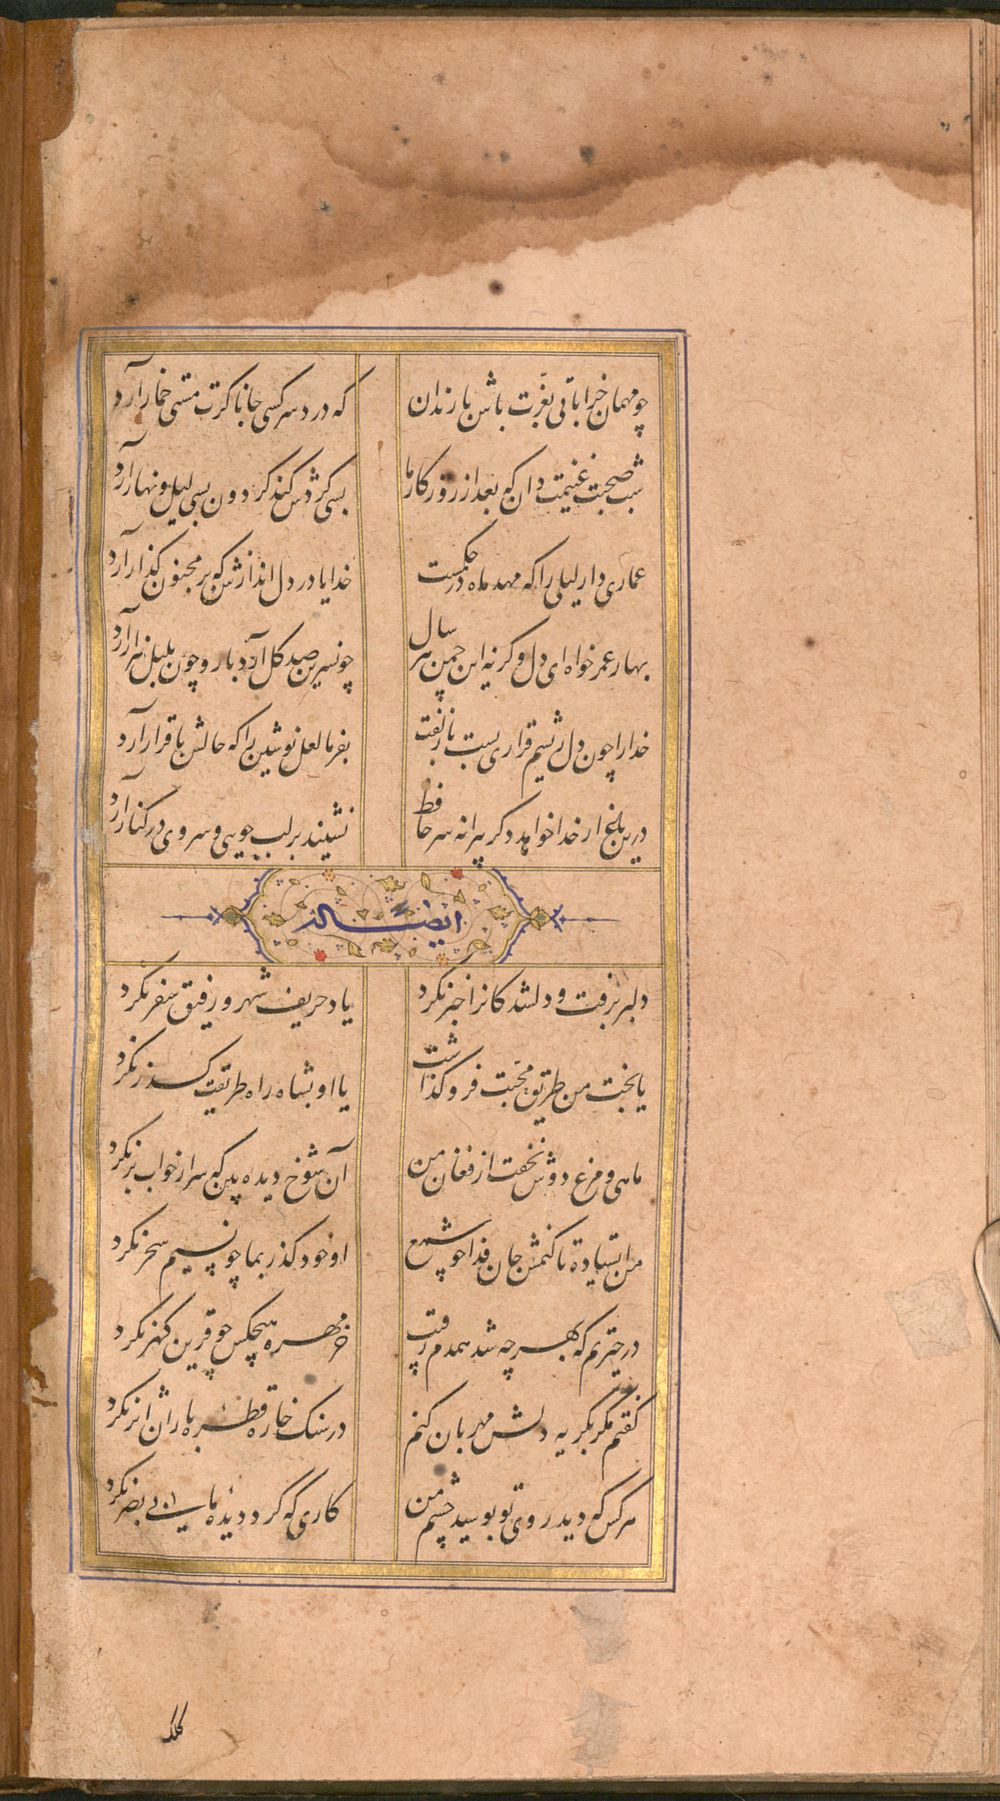 چو مهمان خراباتی بعزّت باش با رندان
که درد سر کشی جانا کرت مستی خمار آرد
شب صحبت غنیمت دان که بعد از روزکار ما
بسی کردش کند کردون بسی لیل و نهار آرد
عماری دار لیلی را که مهد ماه در حکمست
خدایا در دل اندازش که بر مجنون کذار آرد
بهار عمر خواه ای دل وکرنه این چمن هر سال
چو نسرین صد کل آرد بار و چون بلبل هزار آرد
خدا را چون دل ریشم قراری بست با زلفت
بفرما لعل نوشین را که حالش با قرار آرد
درین باغ ار خدا خواهد دکر پیرانه سر حافظ
نشیند بر لب جویی و سروی در کنار آرد
ایضا له
دلبر برفت و دلشدکانرا خبر نکرد
یاد حریف شهر و رفیق سفر نکرد
یا بخت من طریق محبّت فرو کذاشت
یا او بشاه راه طریقت کذر نکرد
ماهی و مرغ دوش نخفت از فغان من
آن شوخ دیده بین که سر از خواب بر نکرد
من ایستاده تا کنمش جان فدا چو شمع
او خود کذر بما چو نسیم سحر نکرد
در حیرتم که بهر چه شد همدم رقیب
خرمهره هیچکس چو قرین کهر نکرد
کفتم مکر بکریه دلش مهربان کنم
در سنک خاره قطره باران اثر نکرد
هر کس که دید روی تو بوسید چشم من
کاری که کرد دیدهٔ ما بی بصر نکرد
کلک